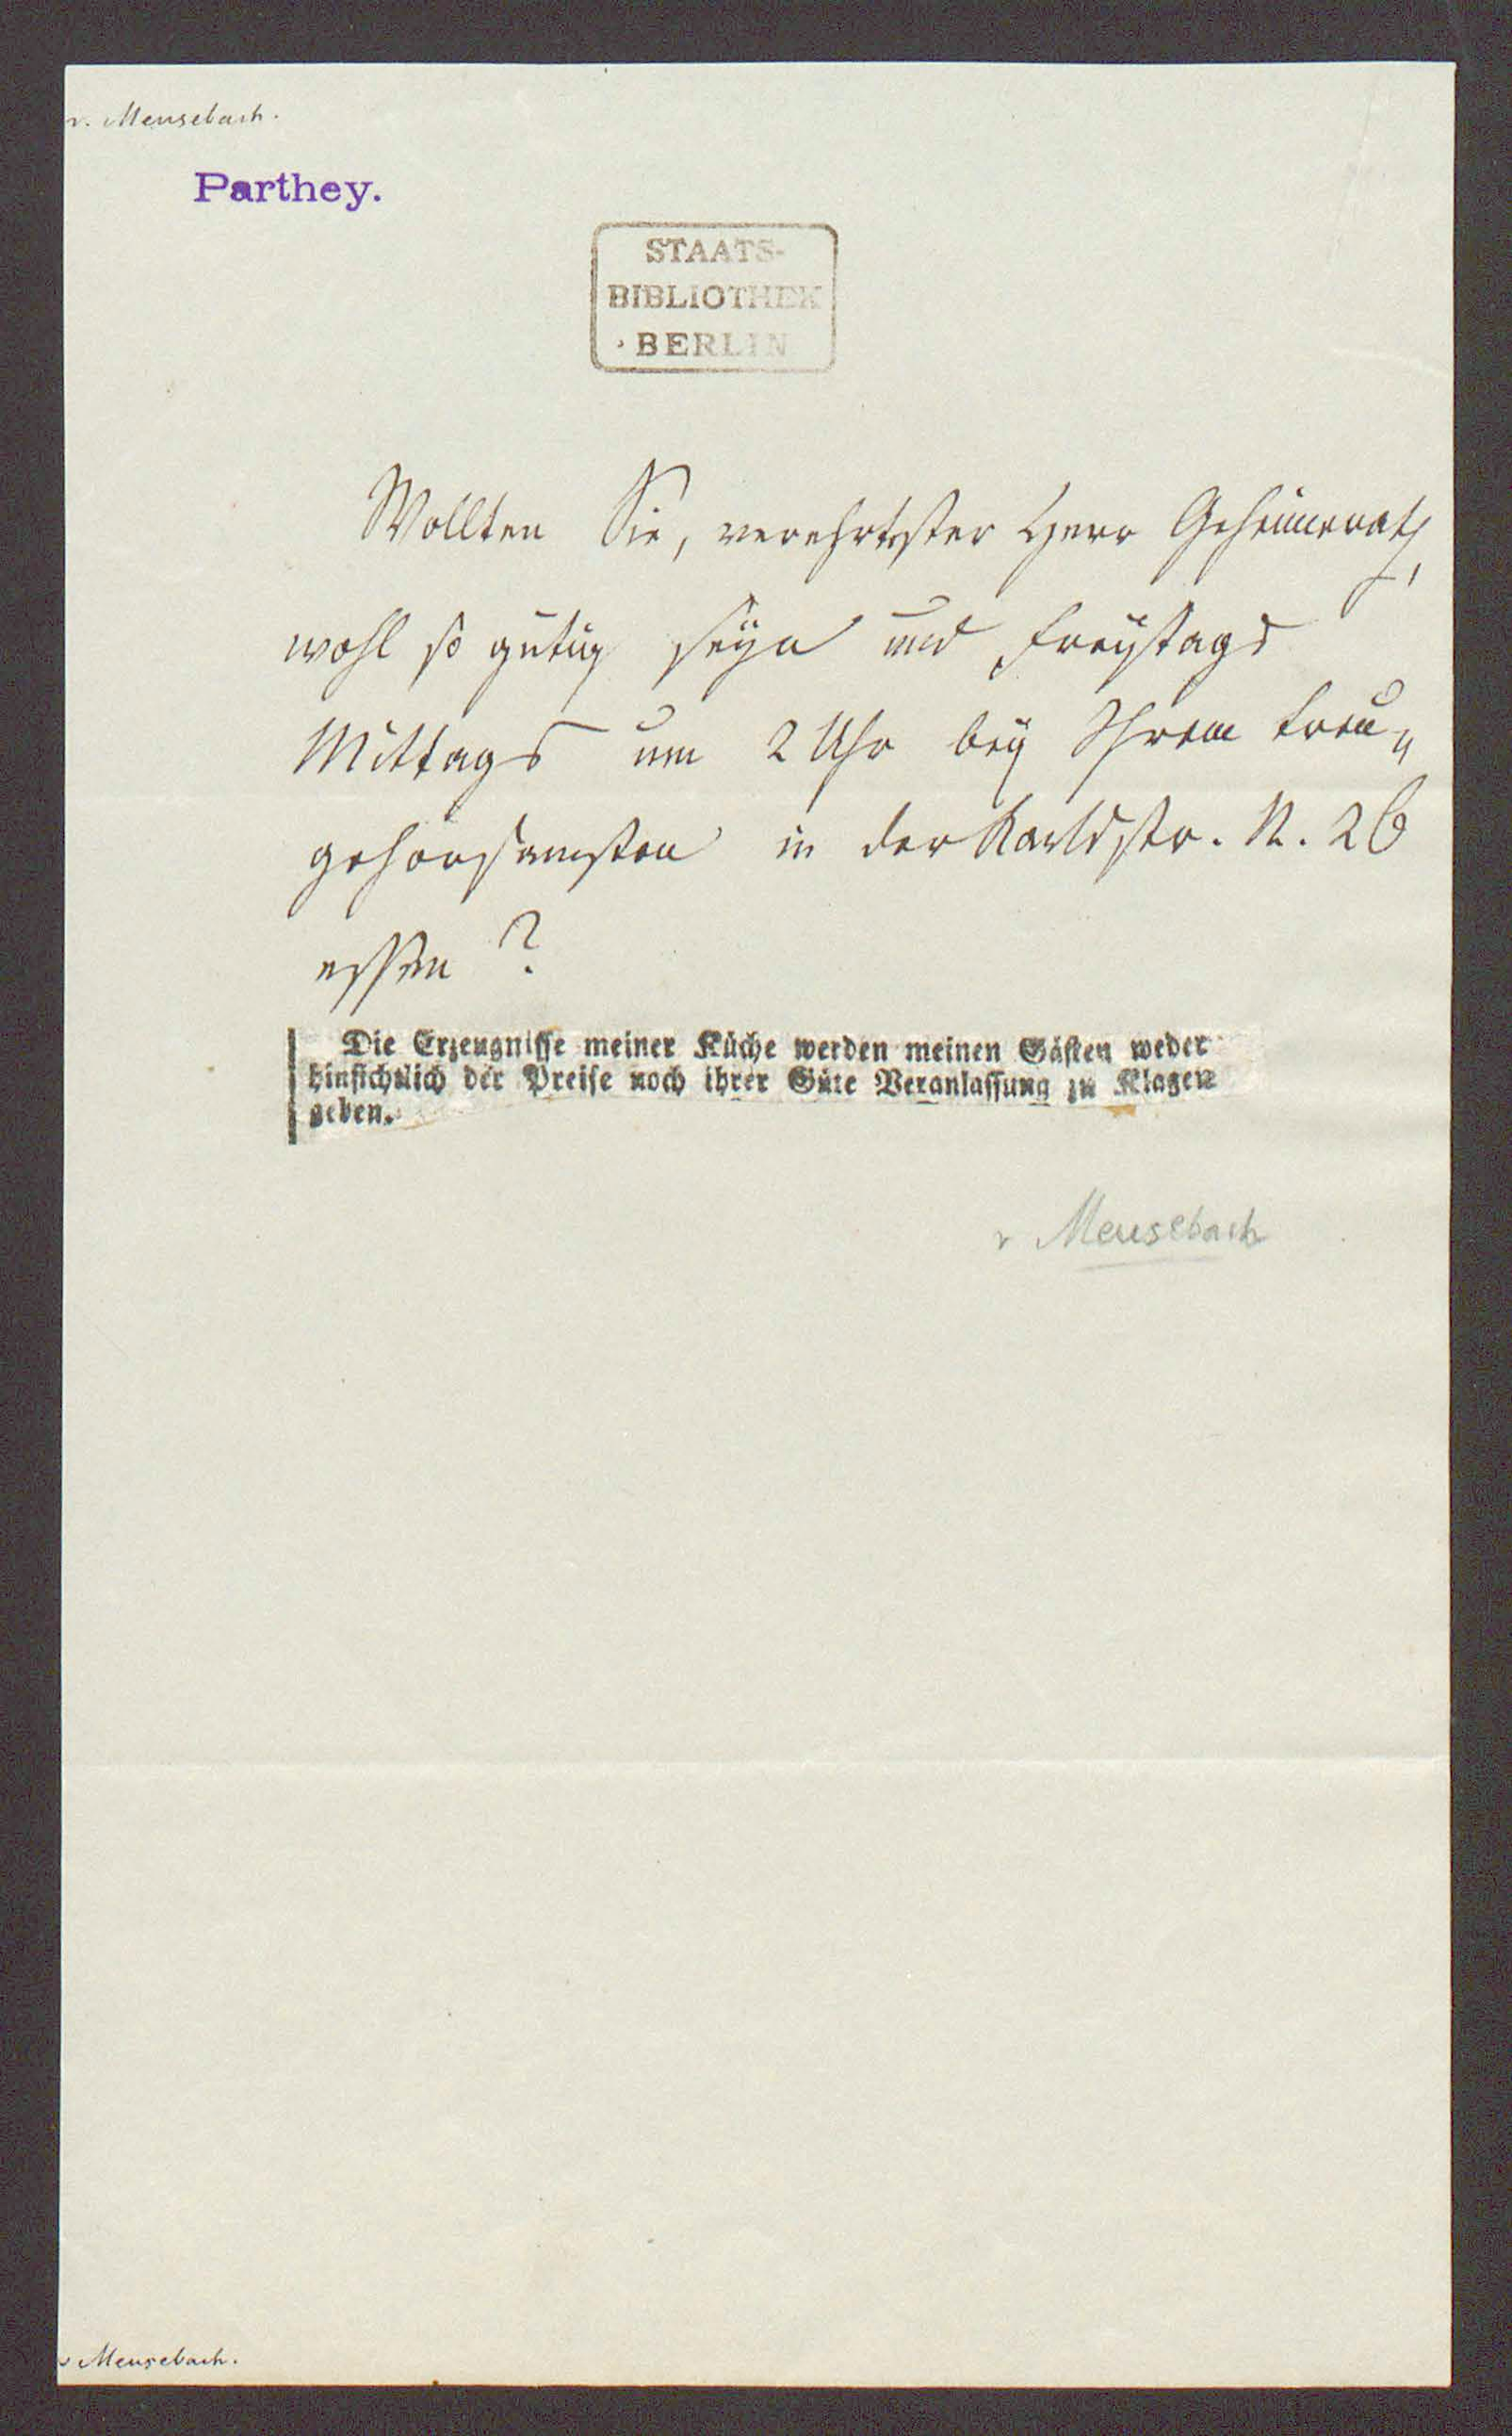 v. Meusebach.
Parthey.
STAATS-
BIBLIOTHEK
BERLIN
Wollten Sie, verehrtester Herr Geheimerath,
wohl so gütig seyn und Freytags
Mittags um 2 Uhr bey Ihrem treu-
gehorsamsten in der Karlsstr. N. 26
essen?
Die Erzeugnisse meiner Küche werden meinen Gästen weder
hinsichtlich der Preise noch ihrer Güte Veranlassung zu Klagen
geben.
v Meusebach
v Meusebach.